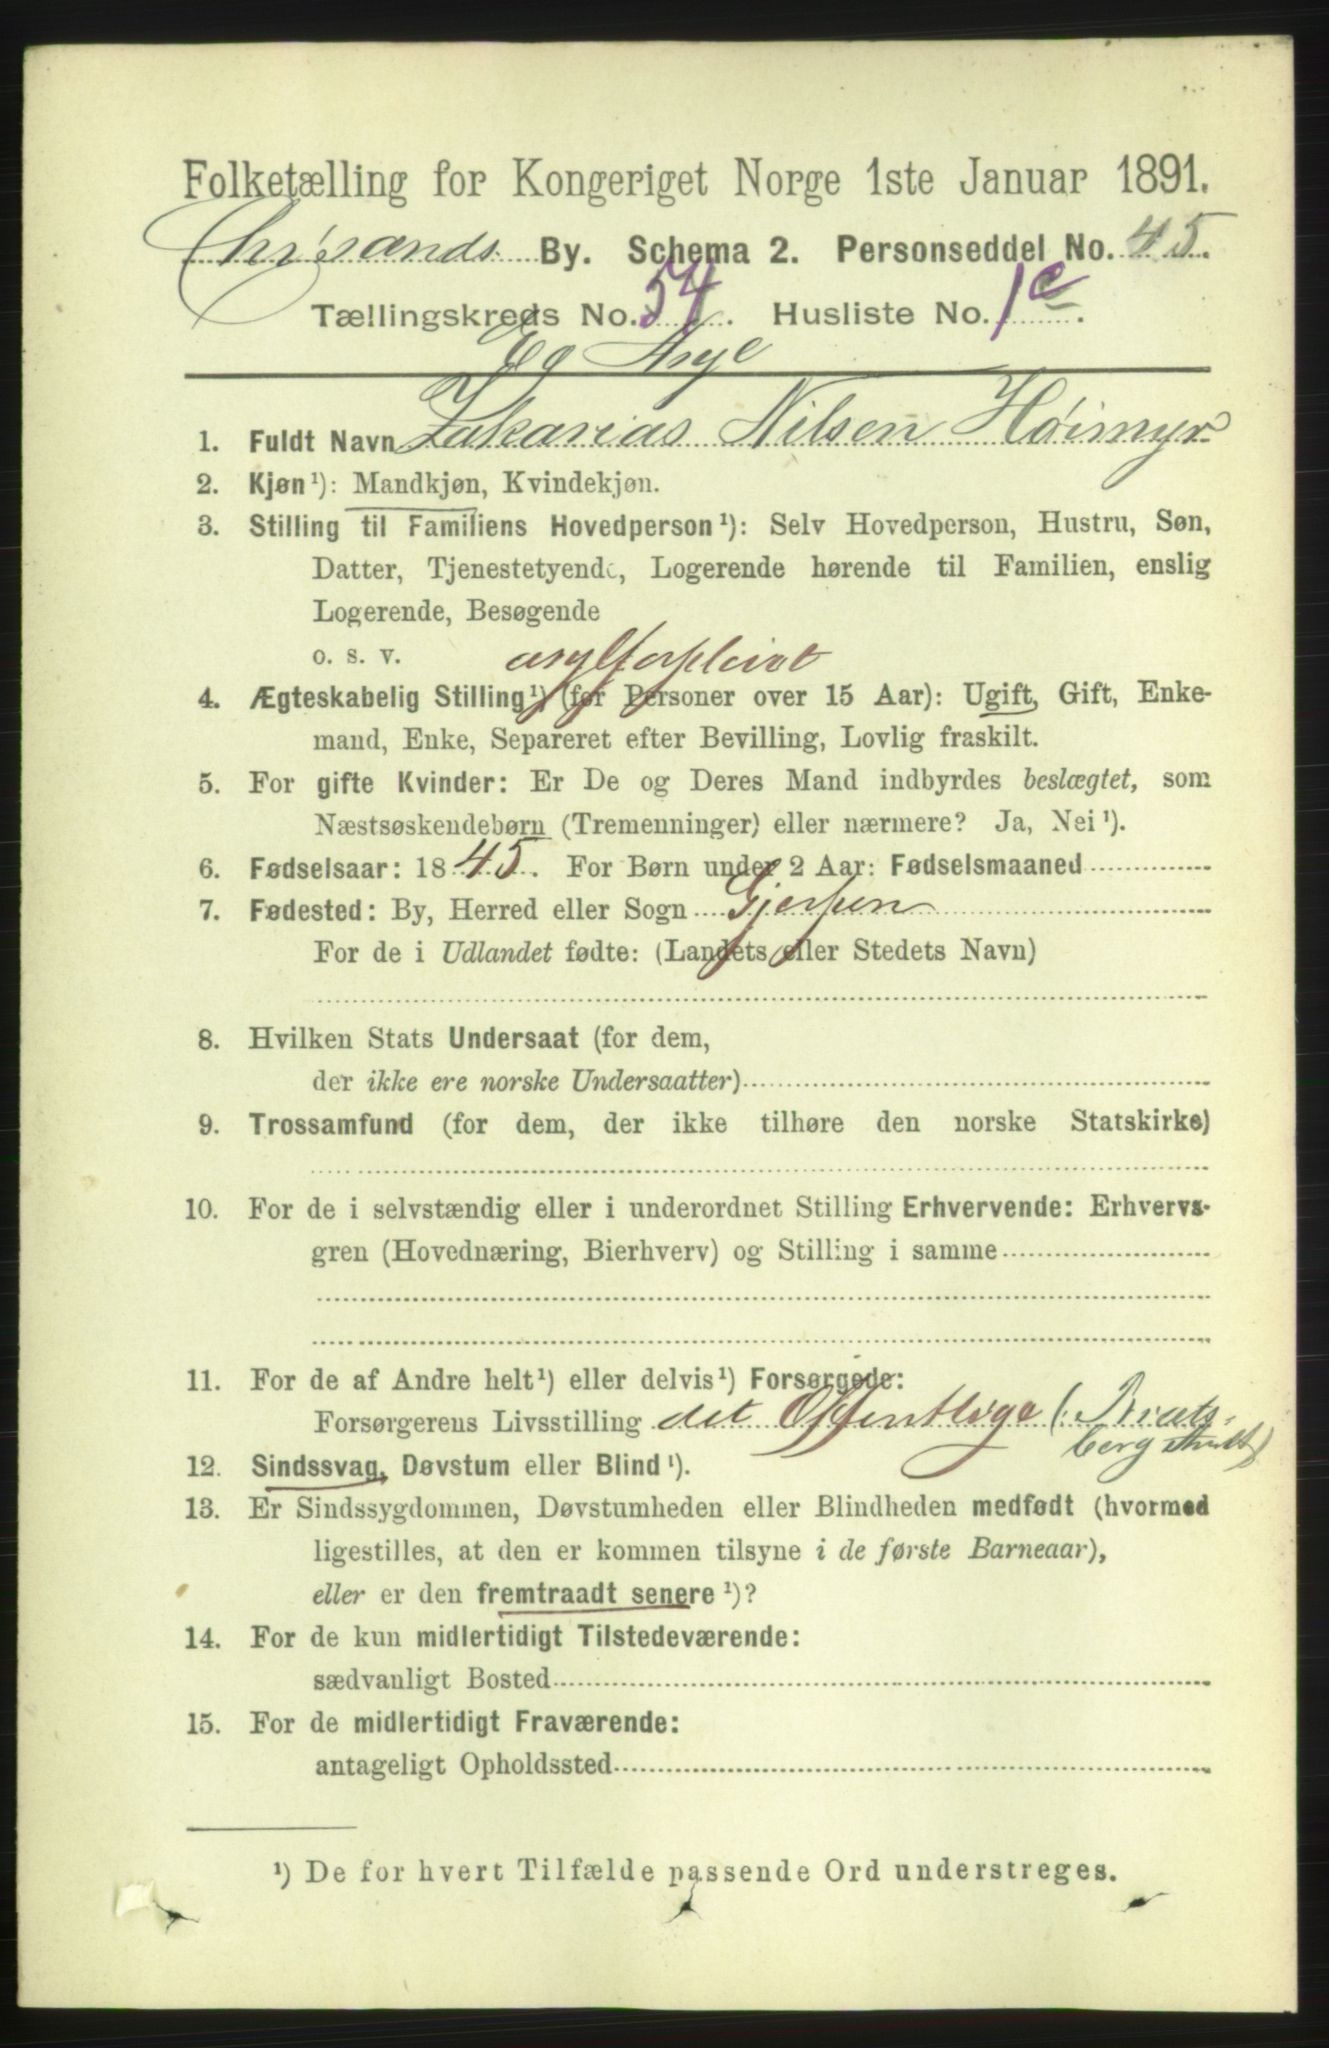 Folketælling for Kongeriget Norge 1ste Januar 1891.
Chr.sands By. Schema 2. Personseddel No. 45.
Tællingskreds No. 54. Husliste No. 1c.
Eg Asyl
1. Fuldt Navn Zakarias Nilsen Høimyr
2. Kjøn¹): Mandkjøn, Kvindekjøn.
3. Stilling til Familiens Hovedperson¹): Selv Hovedperson, Hustru, Søn,
Datter, Tjenestetyende, Logerende hørende til Familien, enslig
Logerende, Besøgende
o. s. v. asylforpleiet
4. Ægteskabelig Stilling¹) (for Personer over 15 Aar): Ugift, Gift, Enke-
mand, Enke, Separeret efter Bevilling, Lovlig fraskilt.
5. For gifte Kvinder: Er De og Deres Mand indbyrdes beslægtet, som
Næstsøskendebørn (Tremenninger) eller nærmere? Ja, Nei¹).
6. Fødselsaar: 1845. For Børn under 2 Aar: Fødselsmaaned
7. Fødested: By, Herred eller Sogn Gjerpen
For de i Udlandet fødte: (Landets eller Stedets Navn)
8. Hvilken Stats Undersaat (for dem,
der ikke ere norske Undersaatter)
9. Trossamfund (for dem, der ikke tilhøre den norske Statskirke)
10. For de i selvstændig eller i underordnet Stilling Erhvervende: Erhvervs-
gren (Hovednæring, Bierhverv) og Stilling i samme
11. For de af Andre helt¹) eller delvis¹) Forsørgede:
Forsørgerens Livsstilling det Offentlige (: Brats-
berg Amt)
12. Sindssvag, Døvstum eller Blind¹).
13. Er Sindssygdommen, Døvstumheden eller Blindheden medfødt (hvormed
ligestilles, at den er kommen tilsyne i de første Barneaar),
eller er den fremtraadt senere¹)?
14. For de kun midlertidigt Tilstedeværende:
sædvanligt Bosted
15. For de midlertidigt Fraværende:
antageligt Opholdssted
¹) De for hvert Tilfælde passende Ord understreges.